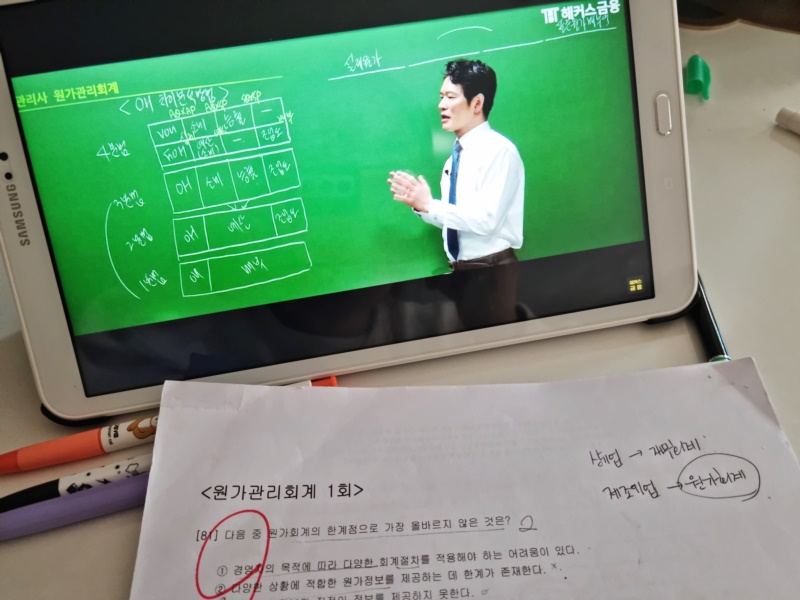 해커스금융
관리사 원가관리회계
실제원가
4분법
3분법
2분법
1분법
VOH 소비 능률
FOH 예산 — 조업도
OH 소비 능률 조업도
OH 예산 조업도
OH 배부
해커스
금융
SAMSUNG
상기업 → 재무회계
제조기업 → 원가회계
<원가관리회계 1회>
[81] 다음 중 원가회계의 한계점으로 가장 올바르지 않은 것은? 2
① 경영자의 목적에 따라 다양한 회계절차를 적용해야 하는 어려움이 있다.
② 다양한 상황에 적합한 원가정보를 제공하는 데 한계가 존재한다. ×
정보를 제공하지 못한다.